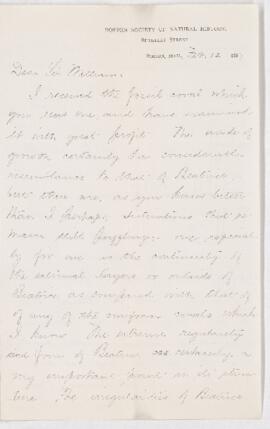 BOSTON SOCIETY OF NATURAL HISTORY
BERKELEY STREET
BOSTON, MASS., Feb. 12
Dear Sir William:
I received the fossil coral which
you sent me and have examined
it with great profit. The mode of
growth certainly has considerable
resemblance to that of Beatricea
but there are, as you know better
than I perhaps,
main still puzzling: one especial
ly for me is the continuity of
the external layers or outside of
Beatricea as compared with that of
of any of the corals which
I know. The extreme regularity
and form of Beatricea is certainly a
very important point in its struc
ture. The irregularities of Beatricea